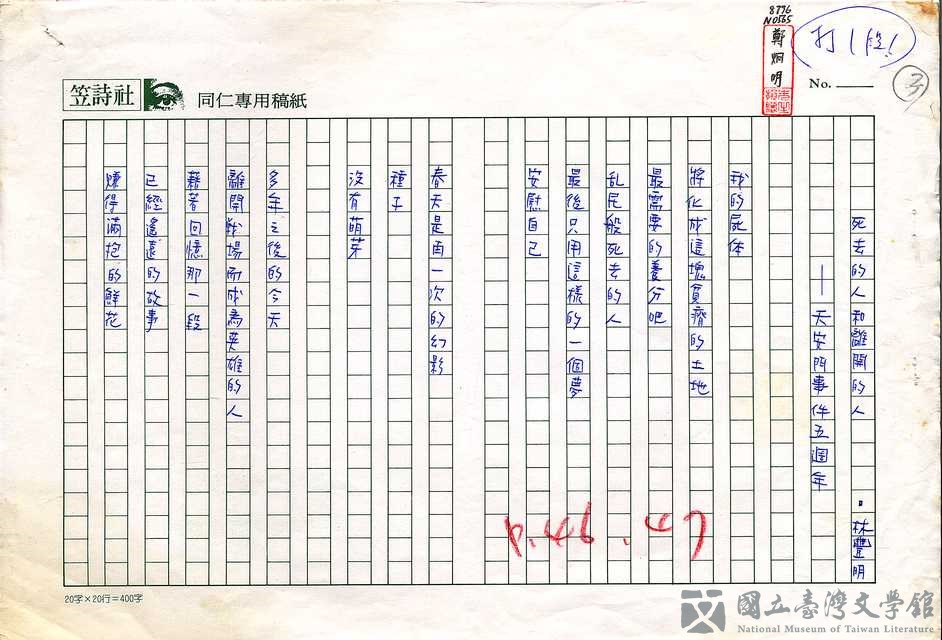 8776
N0565
鄭炯明
打1段!
No.
3
笠詩社
同仁專用稿紙
死去的人和離開的人 ·林豐明
——天安門事件五週年
我的屍体
將化成這塊貧瘠的土地
最需要的養分吧
乱民般死去的人
最後只用這樣的一個夢
安慰自己
春天是再一次的幻影
種子
沒有萌芽
多年之後的今天
離開戰場而成為英雄的人
藉著回憶那一段
已經遙遠的故事
賺得滿抱的鮮花
p.46.47
20字×20行=400字
國立臺灣文學館
National Museum of Taiwan Literature